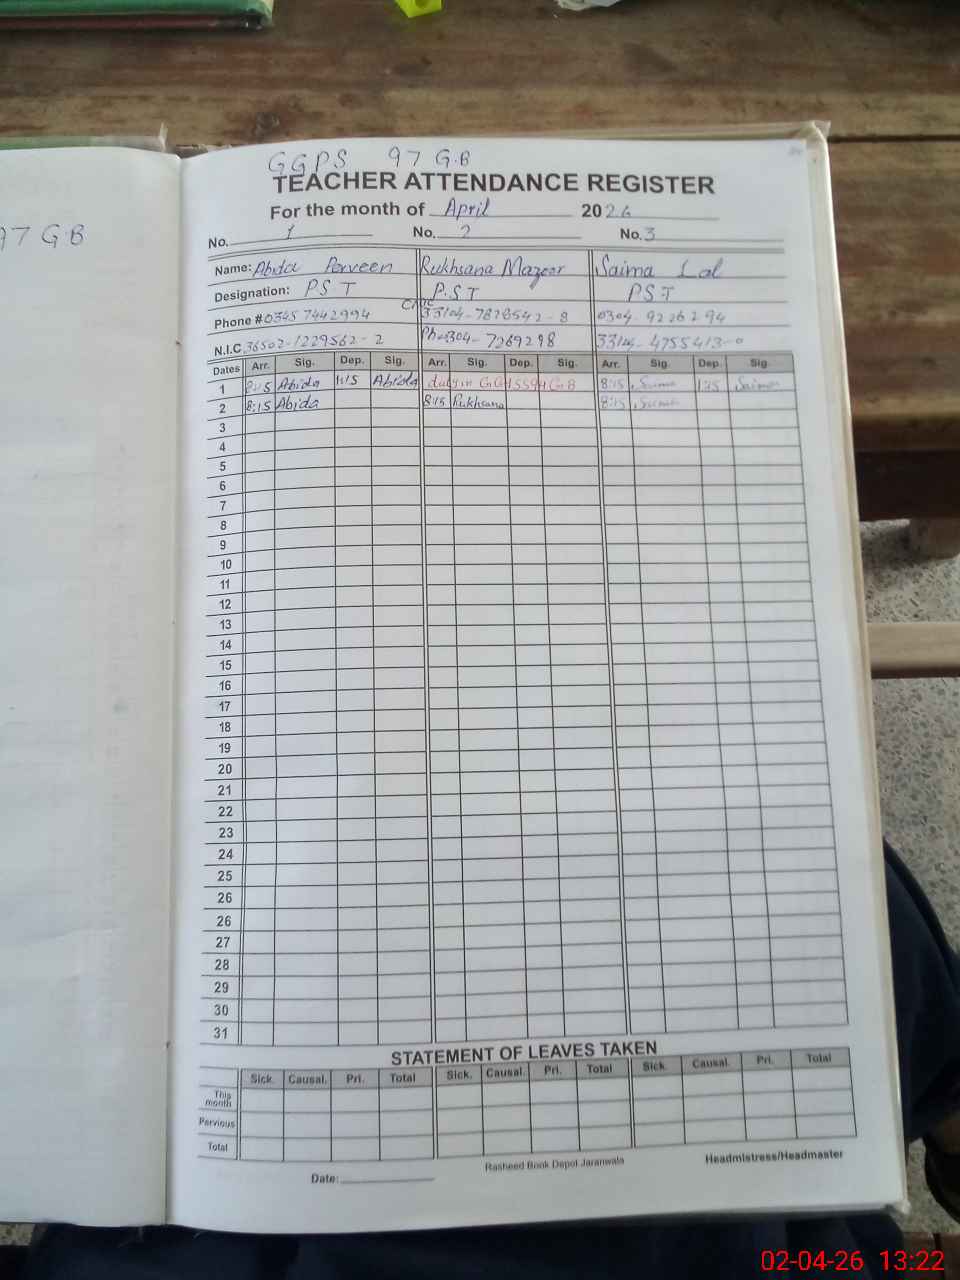 GGPS 97 G.B
97 GB
TEACHER ATTENDANCE REGISTER
For the month of April 2026
No. 1 No. 2 No. 3
Name: Abida Perveen Rukhsana Mazoor Saima Lal
Designation: PST P.ST PST
Phone # 0345 7442994 CNIC 33104-7828542-8 0304-9226294
N.I.C 36502-1229562-2 Ph 0304-7269298 33104-4755413-0
Dates Arr. Sig. Dep. Sig. Arr. Sig. Dep. Sig. Arr. Sig. Dep. Sig.
1 8:15 Abida 1:15 Abida duty in GB 8:15 Saima 1:15 Saima
2 8:15 Abida 8:15 Rukhsana 8:15 Saima
3
4
5
6
7
8
9
10
11
12
13
14
15
16
17
18
19
20
21
22
23
24
25
26
26
27
28
29
30
31
STATEMENT OF LEAVES TAKEN
Sick. Causal. Pri. Total Sick. Causal. Pri. Total Sick. Causal. Pri. Total
This month
Pervious
Total
Date: Rasheed Book Depot Jaranwala Headmistress/Headmaster
02-04-26 13:22